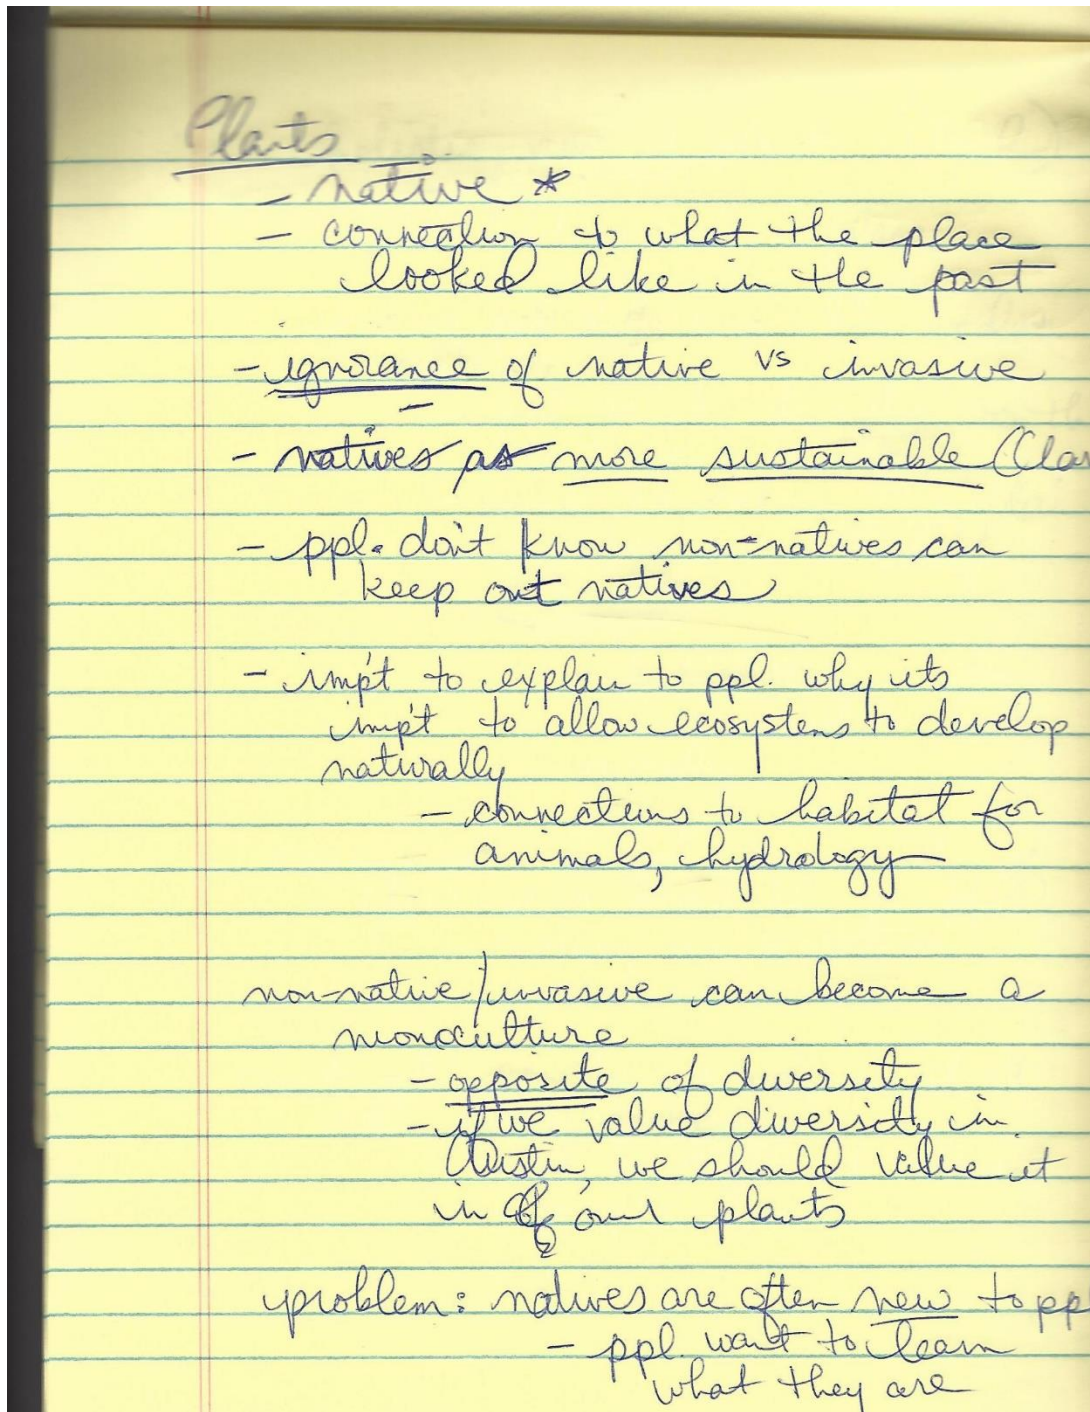 Plants
- native *
- connection to what the place
looked like in the past
- ignorance of native vs invasive
- natives as more sustainable (Clar
- ppl. don't know non-natives can
keep out natives
- imp't to explain to ppl. why its
imp't to allow ecosystems to develop
naturally
- connections to habitat for
animals, hydrology
non-native/invasive can become a
monoculture
- opposite of diversity
- if we value diversity in
Austin, we should value it
in our plants
problem: natives are often new to pp
- ppl. want to learn
what they are